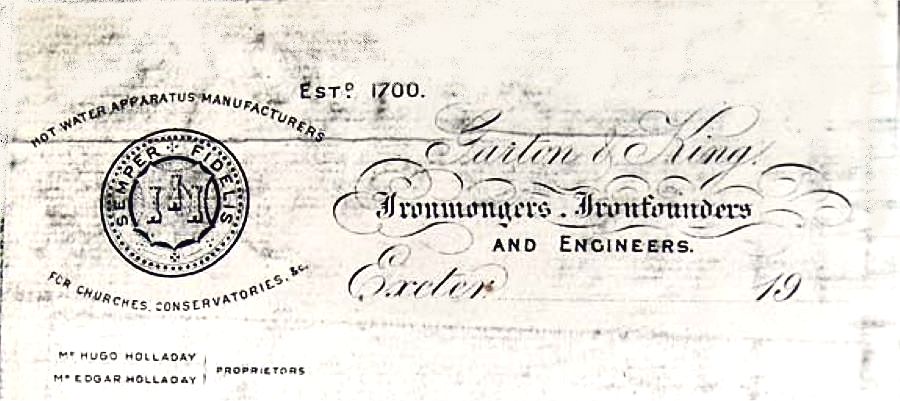 ESTD 1700.
HOT WATER APPARATUS MANUFACTURERS
SEMPER FIDELIS
FOR CHURCHES, CONSERVATORIES, &c.
Garton & King,
Ironmongers. Ironfounders
AND ENGINEERS.
Exeter 19
Mr HUGO HOLLADAY
Mr EDGAR HOLLADAY
PROPRIETORS